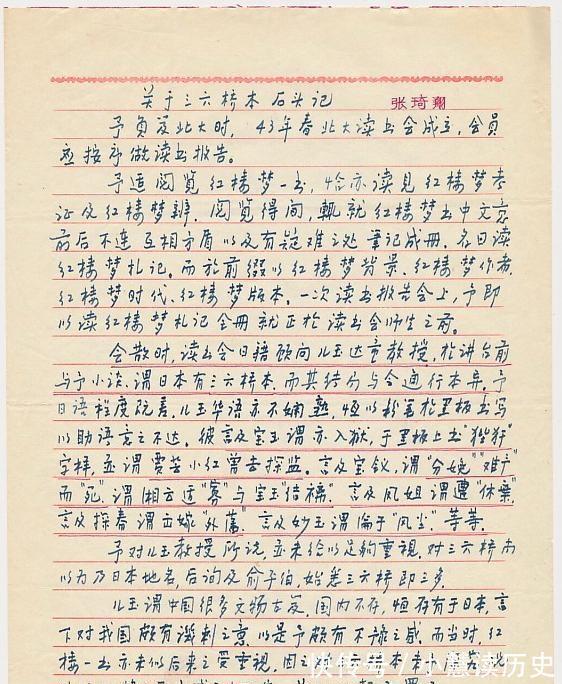 关于三六桥本石头记
张琦翔
予负笈北大时，43年春北大读书会成立，会员
应按序做读书报告。
予适阅览红楼梦一书，恰亦读见红楼梦考
证及红楼梦辨。阅览得间，辄就红楼梦书中文意
前后不连互相矛盾以及有疑难之处笔记成册，名曰读
红楼梦札记。而于前缀以红楼梦背景、红楼梦作者、
红楼梦时代、红楼梦版本。一次读书报告会上，予即
以读红楼梦札记全册就正于读书会师生之前。
会散时，读书会日籍顾问儿玉达童教授，于讲台前
与予小谈，谓日本有三六桥本，而其结局与今通行本异。予
日语程度既差，儿玉华语亦不娴熟，恒以粉笔于黑板书写
以助语言之不达。彼言及宝玉谓亦入狱，于黑板上书“狴犴”
字样，并谓贾芸小红曾去探监。言及宝钗，谓“分娩”“难产”
而“死”。谓湘云适“寡”与宝玉“结褵”。言及凤姐谓遭“休弃”
言及探春谓出嫁“外藩”。言及妙玉谓沦于“风尘”等等。
予对儿玉教授所谈，并未给以足够重视。对三六桥本
以为乃日本地名，后询及俞子伯，始悉三六桥即三多。
儿玉谓中国很多文物古籍，国内不存，恒存有于日本，言
下对我国颇有讽刺之意，以是予颇有不豫之感。而当时，红
楼一书亦未似后来之受重视，因
快传号/小愚读历史